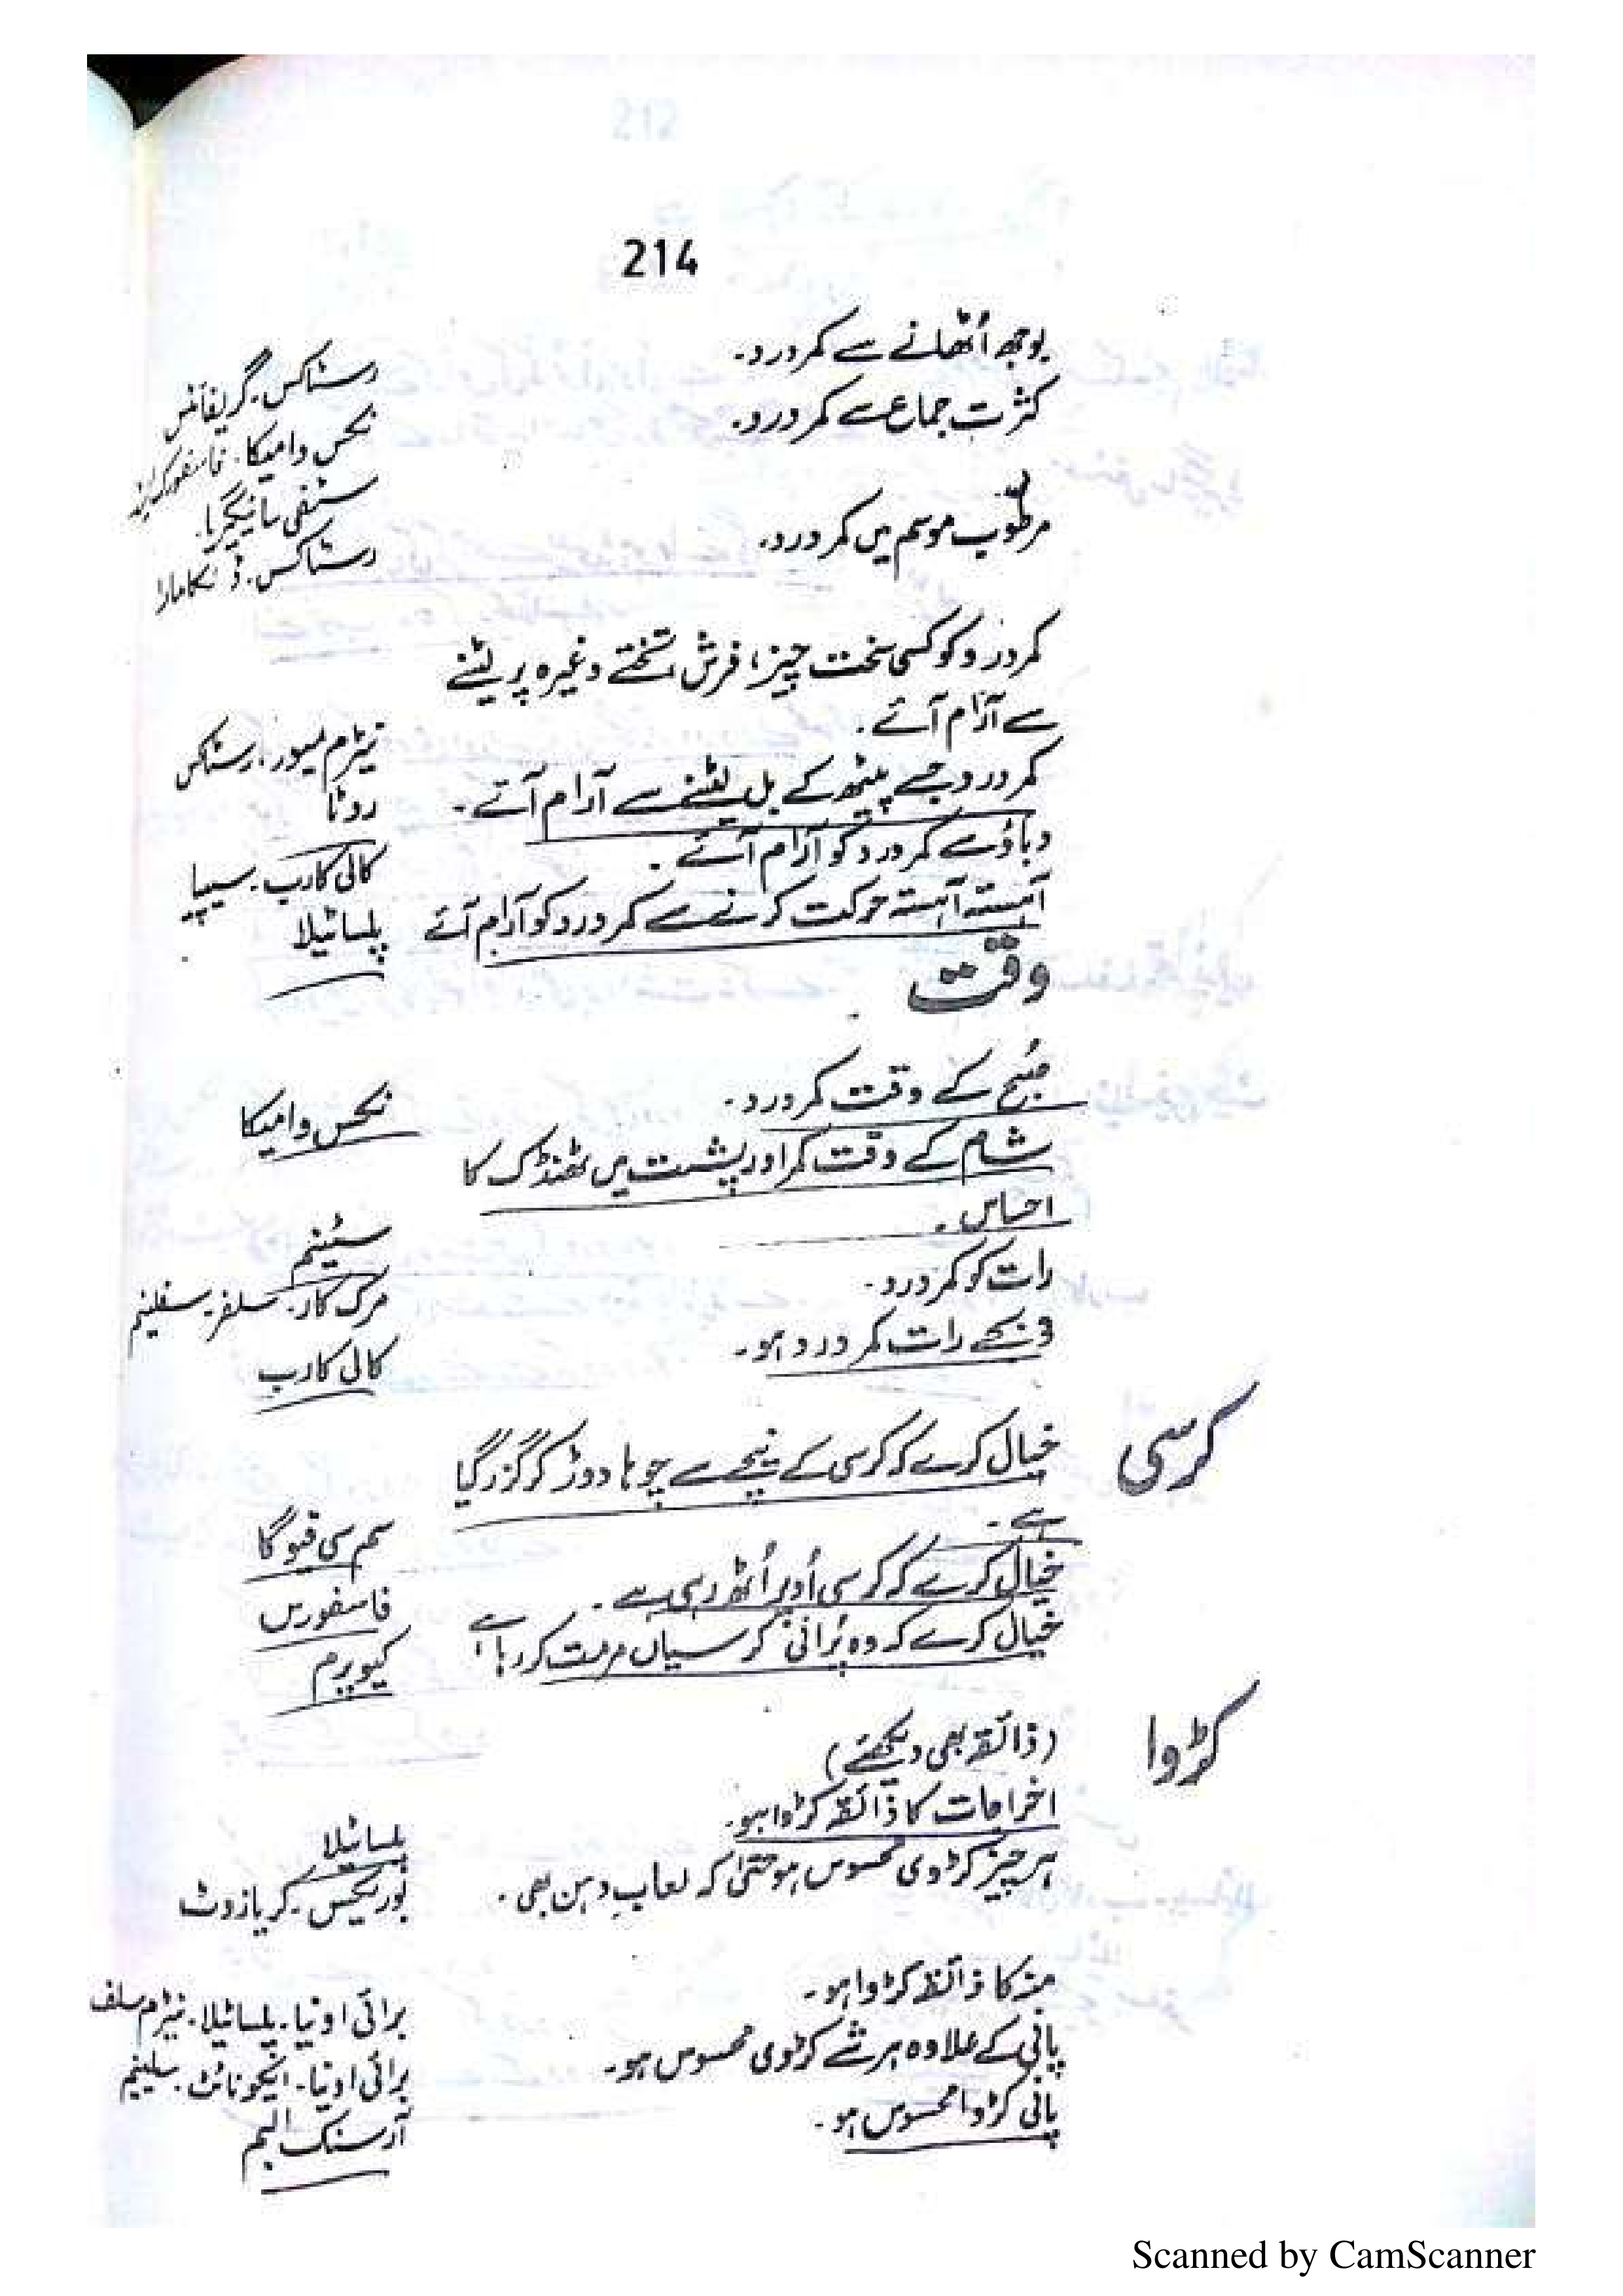 214
بوجھ اُٹھانے سے کمر درد۔
رسٹاکس۔ گریفائٹس
کثرتِ جماع سے کمر درد۔
نکس وامیکا۔ فاسفورک ایسڈ
سٹفی سائیگیریا۔
مرطوب موسم میں کمر درد۔
رسٹاکس۔ ڈلکامارا
کمر درد کو کسی سخت چیز، فرش، تختے وغیرہ پر لیٹنے
سے آرام آئے۔
نیٹرم میور۔ رسٹاکس
کمر درد جسے پیٹھ کے بل لیٹنے سے آرام آئے۔
روٹا
دباؤ سے کمر درد کو آرام آئے۔
کالی کارب۔ سیپیا
آہستہ آہستہ حرکت کرنے سے کمر درد کو آرام آئے
پلساٹیلا
وقت
صُبح کے وقت کمر درد۔
نکس وامیکا
شام کے وقت کمر اور پشت میں ٹھنڈک کا
احساس۔
سٹینم
رات کو کمر درد۔
مرک کار۔ سلفر۔
3 بجے رات کمر درد ہو۔
کالی کارب
کرسی
خیال کرے کہ کرسی کے نیچے سے چوہا دوڑ کر گزر گیا
ہے۔
سم سی فیوگا
خیال کرے کہ کرسی اُوپر اُٹھ رہی ہے۔
فاسفورس
خیال کرے کہ وہ پُرانی کرسیاں مرمت کر رہا ہے
کیوپرم
کڑوا
(ذائقہ بھی دیکھئے)
اخراجات کا ذائقہ کڑوا ہو۔
پلساٹیلا
ہر چیز کڑوی محسوس ہو حتیٰ کہ لعابِ دہن بھی۔
بوریکس۔ کریازوٹ
منہ کا ذائقہ کڑوا ہو۔
برائی اونیا۔ پلساٹیلا۔ نیٹرم سلف
پانی کے علاوہ ہر شے کڑوی محسوس ہو۔
برائی اونیا۔ ایکونائٹ۔ سلینیم
پانی کڑوا محسوس ہو۔
آرسنک البم
Scanned by CamScanner